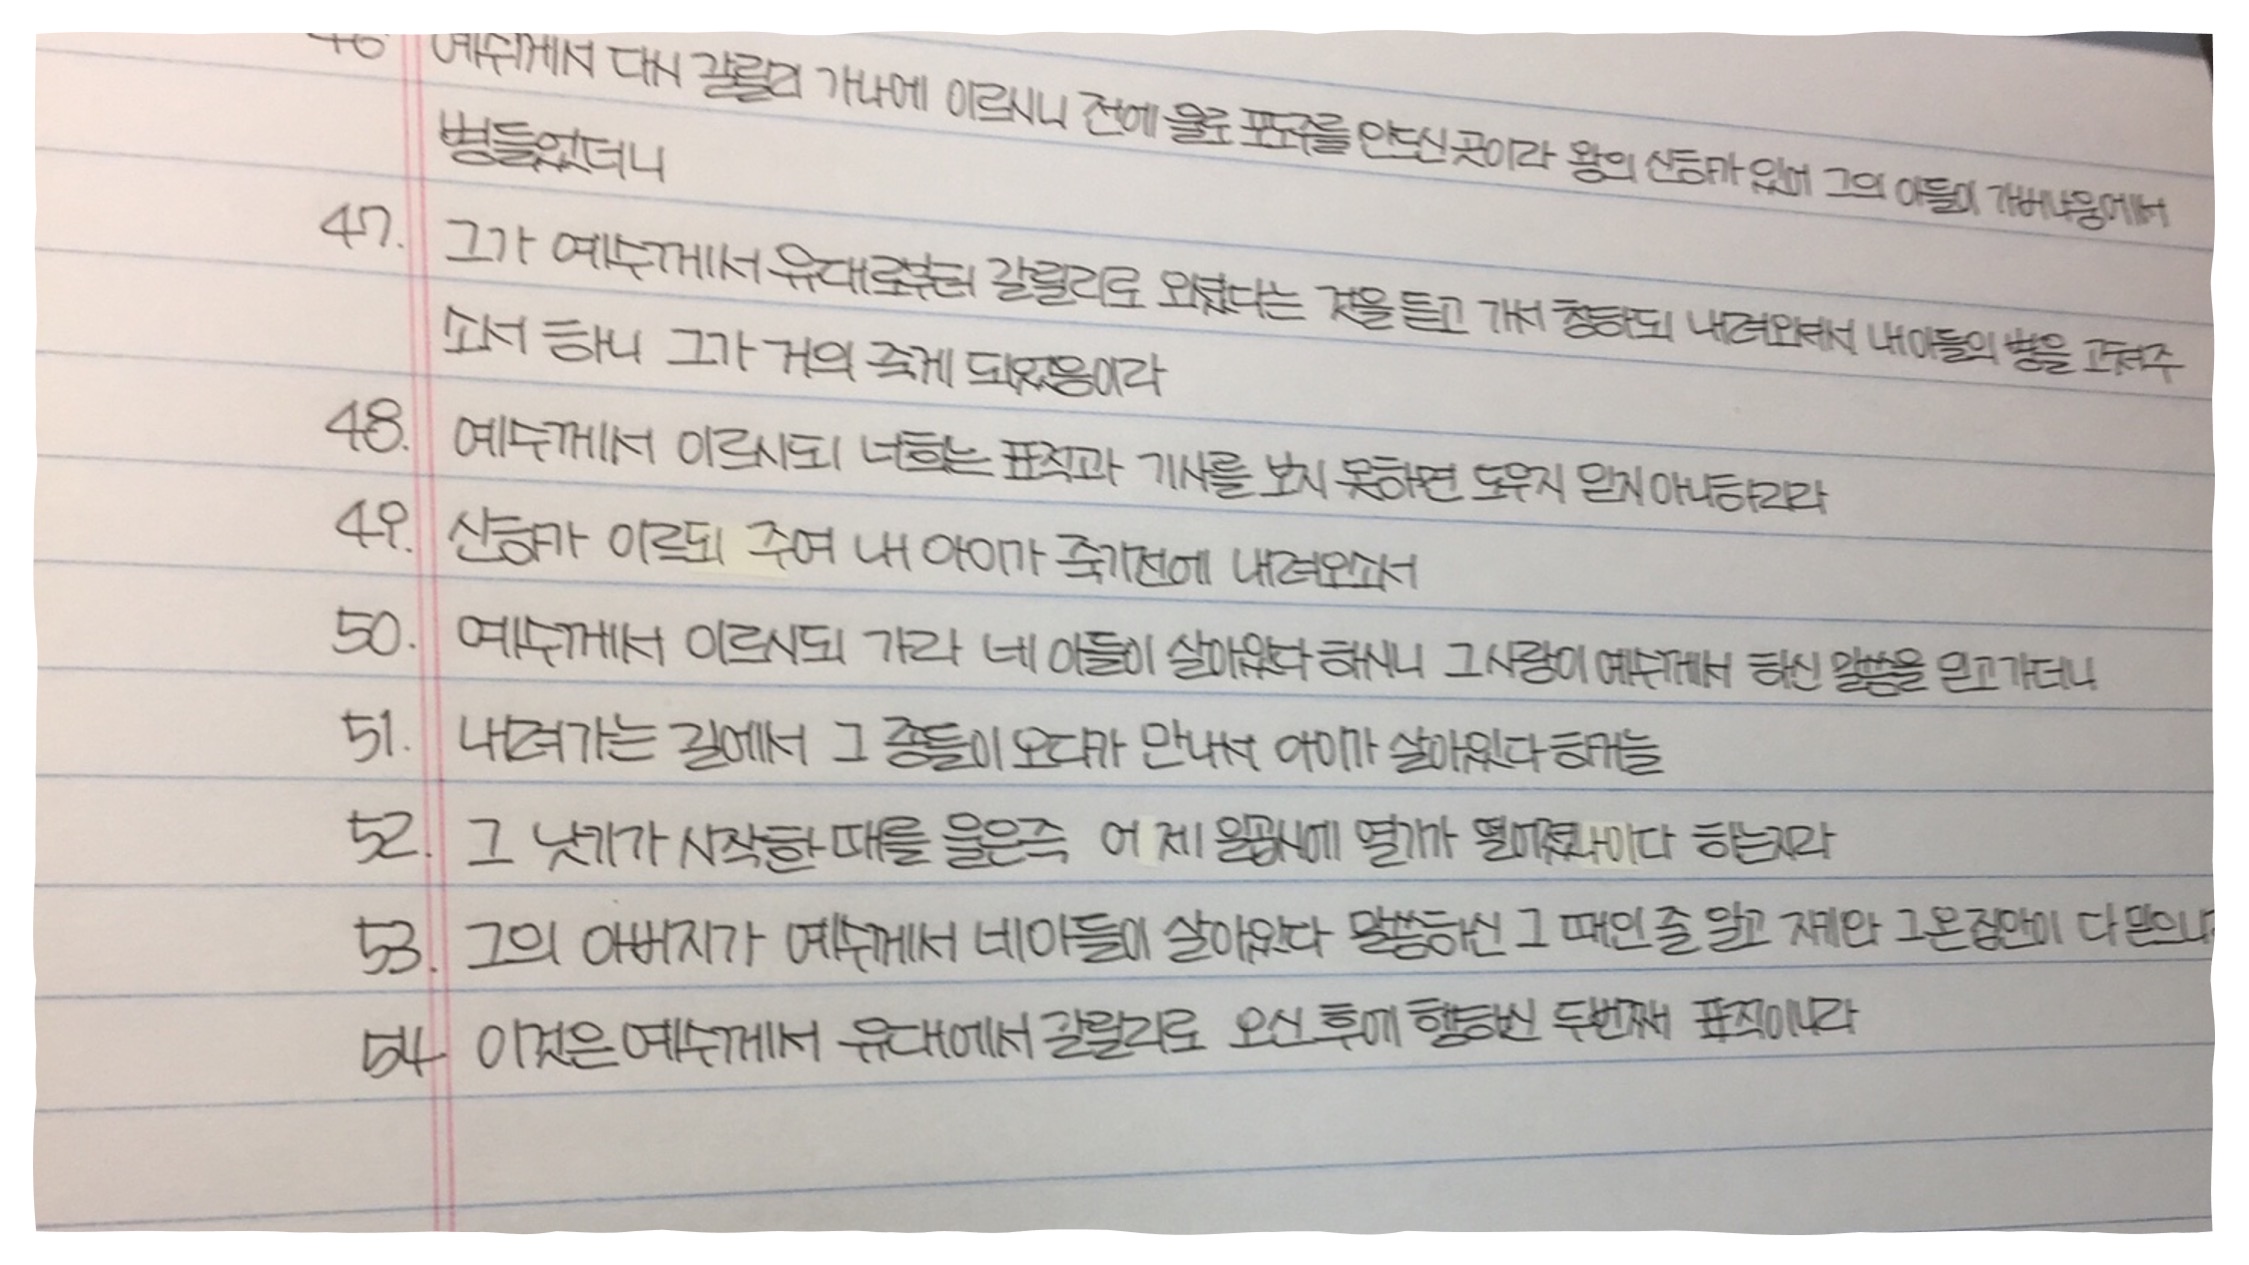 46 예수께서 다시 갈릴리 가나에 이르시니 전에 물로 포도주를 만드신 곳이라 왕의 신하가 있어 그의 아들이 가버나움에서
병들었더니
47. 그가 예수께서 유대로부터 갈릴리로 오셨다는 것을 듣고 가서 청하되 내려오셔서 내 아들의 병을 고쳐주
소서 하니 그가 거의 죽게 되었음이라
48. 예수께서 이르시되 너희는 표적과 기사를 보지 못하면 도무지 믿지 아니하리라
49. 신하가 이르되 주여 내 아이가 죽기전에 내려오소서
50. 예수께서 이르시되 가라 네 아들이 살아있다 하시니 그 사람이 예수께서 하신 말씀을 믿고 가더니
51. 내려가는 길에서 그 종들이 오다가 만나서 아이가 살아있다 하거늘
52. 그 낫기가 시작한 때를 물은즉 어제 일곱시에 열기가 떨어졌나이다 하는지라
53. 그의 아버지가 예수께서 네 아들이 살아있다 말씀하신 그 때인 줄 알고 자기와 그 온 집안이 다 믿으니라
54 이것은 예수께서 유대에서 갈릴리로 오신 후에 행하신 두번째 표적이니라